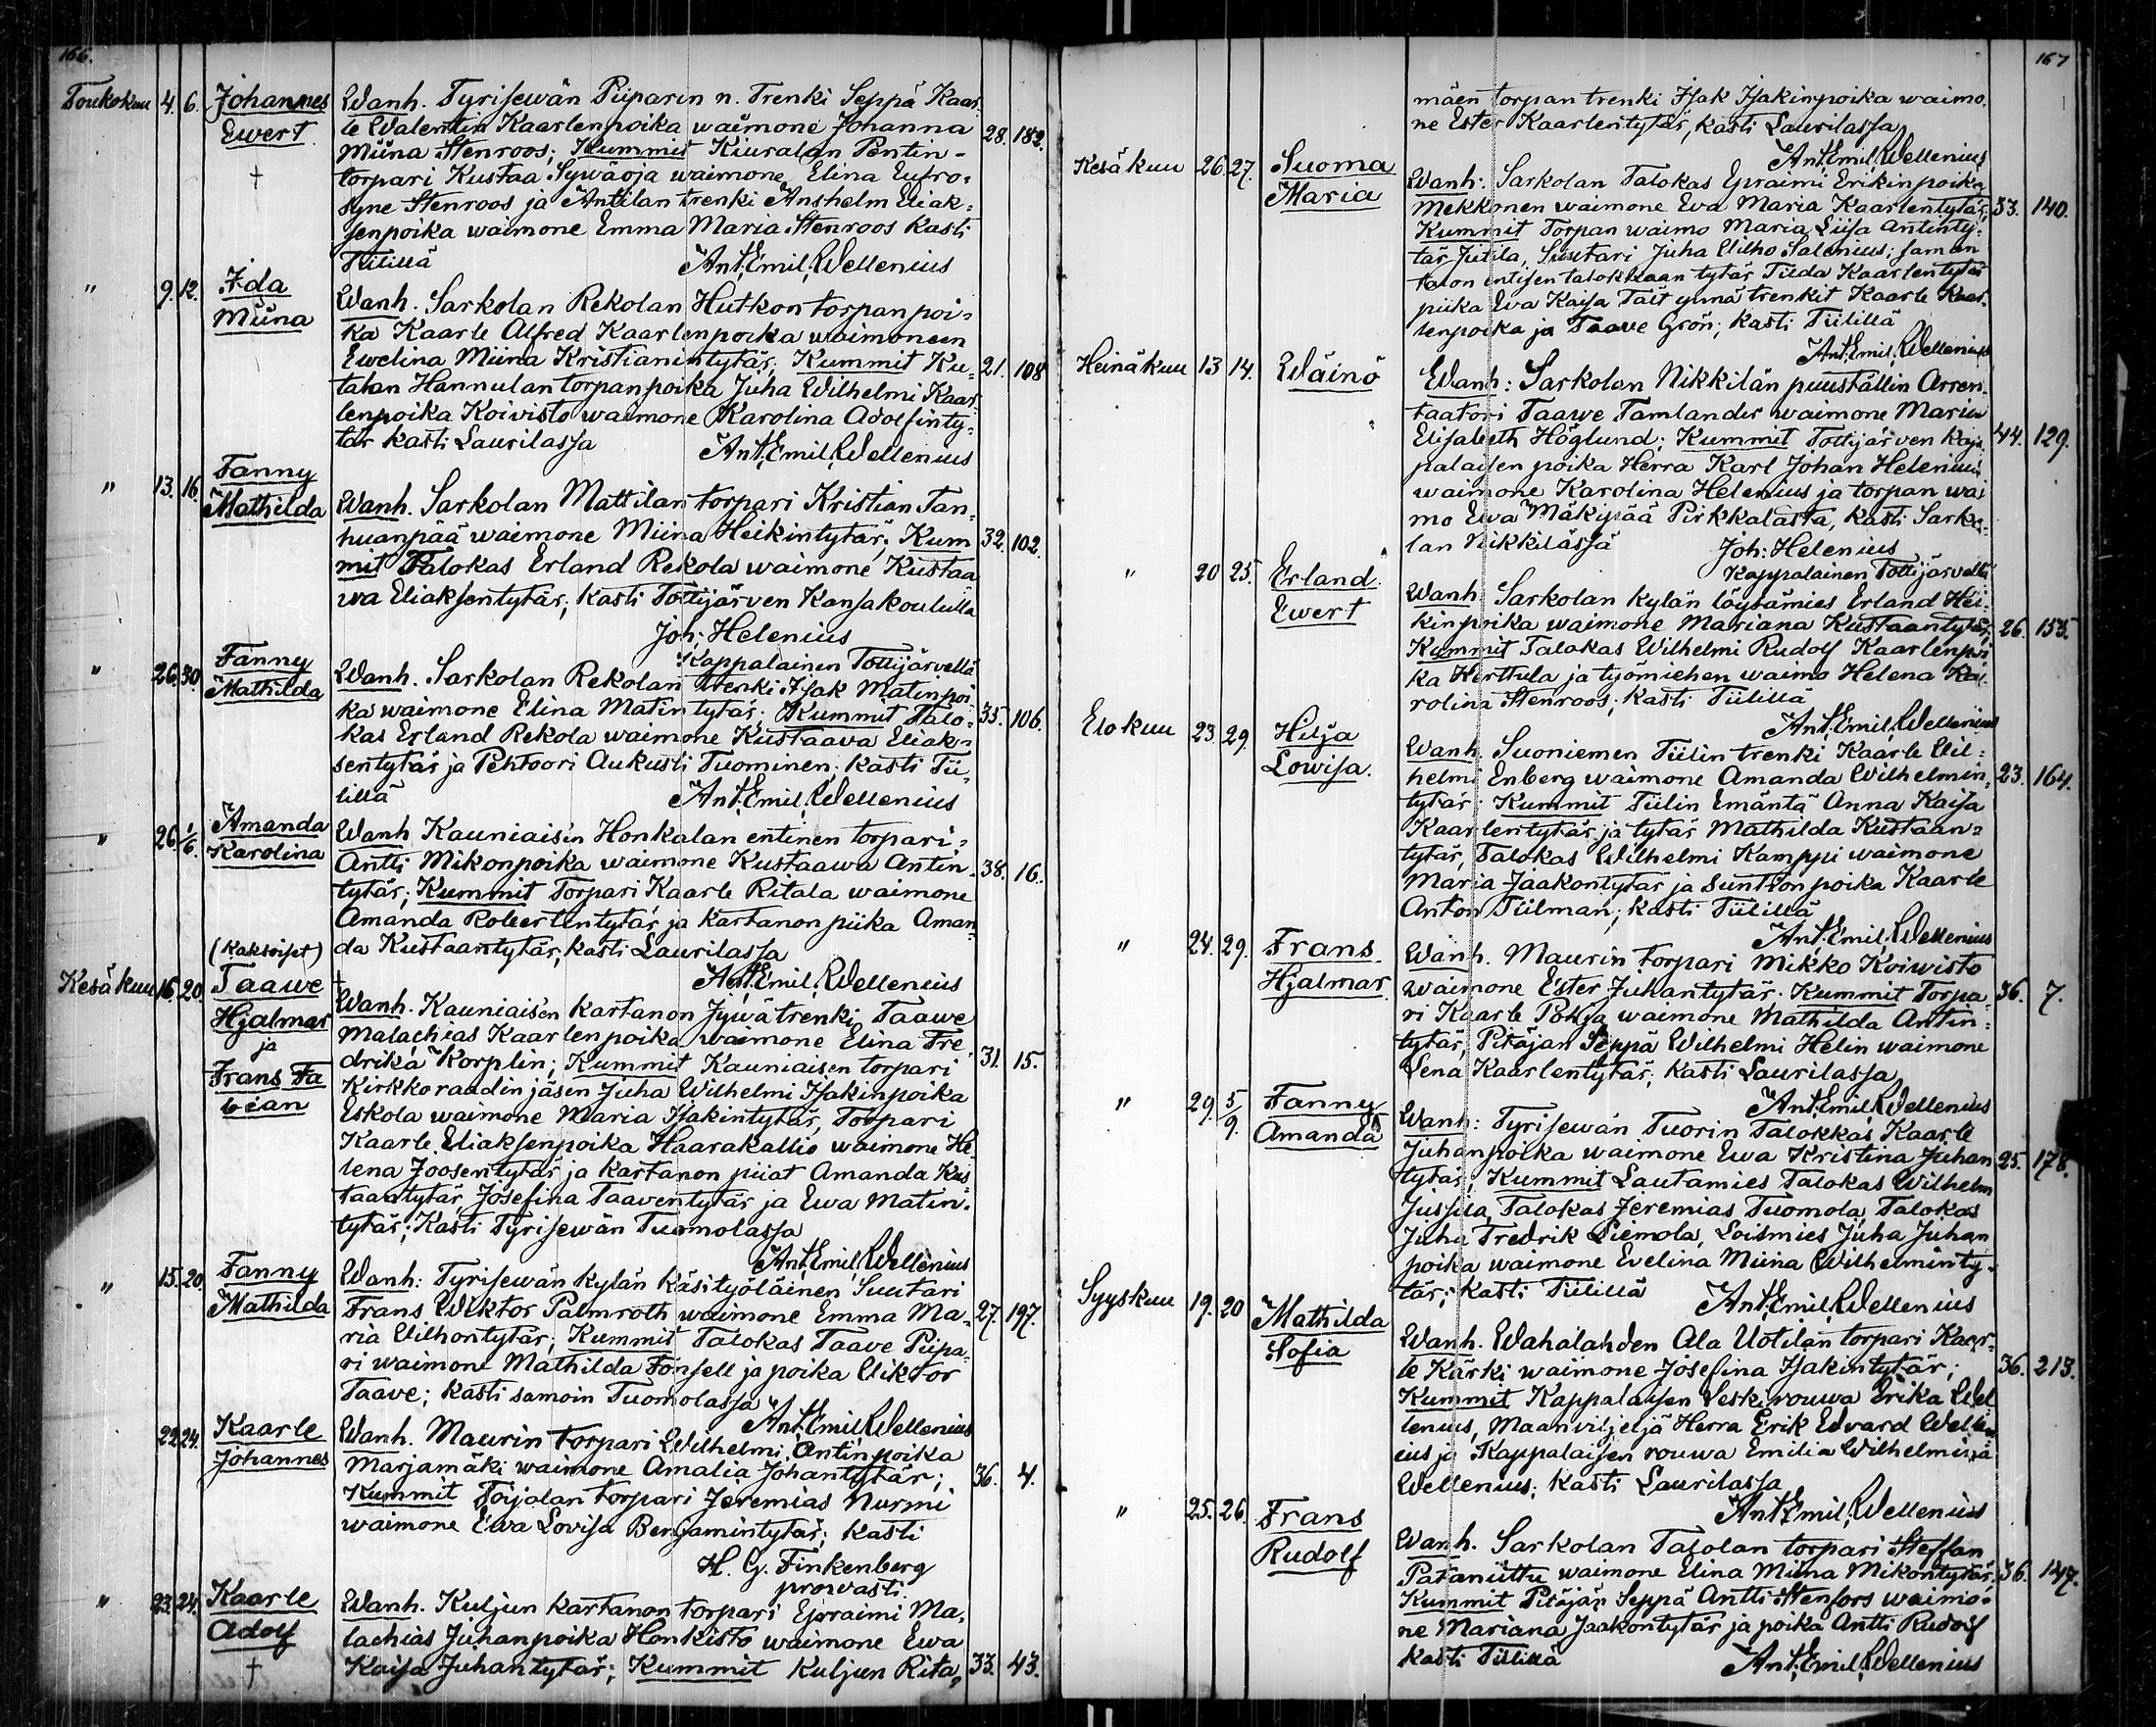 166.
Toukokuu 4. 6. Johannes Ewert † Wanh. Tyrisewän Piiparin n. Trenki Seppä Kaar-
le Walentin Kaarlenpoika waimone Johanna 28. 182.
Miina Stenroos; Kummit Kiuralan Pentin-
torpari Kustaa Sywäoja waimone Elina Eufro-
syne Stenroos ja Anttilan trenki Anshelm Eliak-
senpoika waimone Emma Maria Stenroos Kasti
Tiilillä Ant. Emil. Wellenius
" 9. 12. Ida Miina Wanh. Sarkolan Rekolan Hutkon torpan poi-
ka Kaarle Alfred Kaarlenpoika waimoneen
Ewelina Miina Kristianintytär; Kummit Ku- 21. 108
talan Hannulan torpanpoika Juha Wilhelmi Kaar-
lenpoika Koivisto waimone Karolina Adolfinty-
tär kasti Laurilassa Ant. Emil. Wellenius
" 13. 16. Fanny Mathilda Wanh. Sarkolan Mattilan torpari Kristian Tan-
huanpää waimone Miina Heikintytär; Kum- 32. 102.
mit Talokas Erland Rekola waimone Kustaa
wa Eliaksentytär; kasti Tottijärven Kansakoululla
Joh: Helenius
Kappalainen Tottijärvellä
" 26. 30. Fanny Mathilda Wanh. Sarkolan Rekolan trenki Isak Matinpoi-
ka waimone Elina Matintytär; Kummit Talo- 35. 106.
kas Erland Rekola waimone Kustaava Eliak-
sentytär ja Pehtoori Aukusti Tuominen; Kasti Tii-
lillä Ant. Emil. Wellenius
" 26. 1/6. Amanda Karolina Wanh. Kauniaisin Honkalan entinen torpari
Antti Mikonpoika waimone Kustaawa Antin- 38. 16.
tytär; Kummit Torpari Kaarle Ritala waimone
Amanda Robertintytär ja kartanon piika Aman-
da Kustaantytär, kasti Laurilassa
Ant. Emil. Wellenius
(Kaksoiset)
Kesäkuu 16. 20. Taawe Hjalmar ja Frans Fabian † Wanh. Kauniaisen kartanon Jywätrenki Taawe
Malachias Kaarlenpoika waimone Elina Fre-
drika Korplin; Kummit Kauniaisen torpari 31. 15.
Kirkkoraadin jäsen Juha Wilhelmi Isakinpoika
Eskola waimone Maria Isakintytär, Torpari
Kaarle Eliaksenpoika Haarakallio waimone He-
lena Joosentytär ja kartanon piiat Amanda Kus-
taantytär, Josefina Taaventytär ja Ewa Matin-
tytär; Kasti Tyrisewän Tuomolassa
Ant. Emil. Wellenius
" 15. 20. Fanny Mathilda Wanh: Tyrisewän kylän käsityöläinen Suutari
Frans Wiktor Palmroth waimone Emma Ma- 27. 197.
ria Wilhontytär; Kummit Talokas Taave Piipa-
ri waimone Mathilda Fonsell ja poika Wiktor
Taave; kasti samoin Tuomolassa
Ant. Emil. Wellenius
22. 24. Kaarle Johannes Wanh. Maurin torpari Wilhelmi Antinpoika
Marjamäki waimone Amalia Johantytär; 36. 4.
Kummit Toijolan torpari Jeremias Nurmi
waimone Ewa Lovisa Benjamintytär; kasti
H. G. Finkenberg
prowasti
" 23. 24. Kaarle Adolf † Wanh. Kuljun kartanon torpari Epraimi Ma-
lachias Juhanpoika Honkisto waimone Ewa
Kaisa Juhantytär; Kummit Kuljun Rita- 33. 43.
167
mäen torpan trenki Isak Isakinpoika waimo-
ne Ester Kaarlentytär, kasti Laurilassa
Ant. Emil. Wellenius
Kesäkuu 26 27. Suoma Maria Wanh: Sarkolan Talokas Epraimi Erikinpoika
Mekkonen waimone Ewa Maria Kaarlentytär; 33. 140.
Kummit Torpan waimo Maria Liisa Antinty-
tär Juitila, Suutari Juha Wilho Salenius; saman
talon entisen talokkaan tytär Tilda Kaarlentytär
piika Eva Kaisa Täit ynnä trenkit Kaarle Kaar-
lenpoika ja Taave Grön; kasti Tiilillä
Ant. Emil. Wellenius
Heinäkuu 13 14. Wäinö Wanh: Sarkolan Nikkilän puuställin Arren-
taatori Taawe Tamlander waimone Maria
Elisabeth Höglund; Kummit Tottijärven kap- 44. 129.
palaisen poika Herra Karl Johan Helenius
waimone Karolina Helenius ja torpan wai
mo Ewa Mäkipää Pirkkalasta, kasti Sarko-
lan Nikkilässä Joh: Helenius
Kappalainen Tottijärvellä
" 20 25. Erland Ewert Wanh. Sarkolan kylän löysämies Erland Hei-
kinpoika waimone Mariana Kustaantytär; 26. 155.
Kummit Talokas Wilhelmi Rudolf Kaarlenpoi
ka Herttula ja työmiehen waimo Helena Ka-
rolina Stenroos; kasti Tiilillä
Ant. Emil. Wellenius
Elokuu 23. 29. Hilja Lowisa. Wanh. Suoniemen Tiilin trenki Kaarle Wil-
helmi Enberg waimone Amanda Wilhelmin- 23. 164.
tytär. Kummit Tiilin Emäntä Anna Kaisa
Kaarlentytär ja tytär Mathilda Kustaan-
tytär, Talokas Wilhelmi Kamppi waimone
Maria Jaakontytär ja Suntion poika Kaarle
Anton Tiilman; kasti Tiilillä
Ant. Emil. Wellenius
" 24. 29. Frans Hjalmar Wanh. Maurin torpari Mikko Koiwisto
waimone Ester Juhantytär. Kummit Torpa- 36. 7.
ri Kaarle Pohja waimone Mathilda Antin-
tytär, Pitäjän Seppä Wilhelmi Helin waimone
Lena Kaarlentytär; Kasti Laurilassa
Ant. Emil. Wellenius
" 29. 5/9. Fanny Amanda Wanh: Tyrisewän Tuorin Talokkas Kaarle
Juhanpoika waimone Ewa Kristina Juhan- 25. 178.
tytär; Kummit Lautamies Talokas Wilhelm
Jussila, Talokas Jeremias Tuomola, Talokas
Juha Fredrik Liemola, Loismies Juha Juhan
poika waimone Evelina Miina Wilhelminty-
tär; kasti Tiilillä Ant. Emil. Wellenius
Syyskuu 19. 20 Mathilda Sofia Wanh. Wahalahden Ala Uotilan torpari Kaar-
le Kärki waimone Josefina Isakintytär; 36. 213.
Kummit Kappalaisen Leskirouwa Erika Wel
lenius, Maanviljeljä Herra Erik Edvard Wellen
ius ja Kappalaisen rouwa Emilia Wilhelmiina
Wellenius; kasti Laurilassa
Ant. Emil. Wellenius
" 25. 26. Frans Rudolf Wanh. Sarkolan Talolan torpari Steffan
Pataniittu waimone Elina Miina Mikontytär; 36. 147.
Kummit Pitäjän Seppä Antti Stenfors waimo-
ne Mariana Jaakontytär ja poika Antti Rudolf
kasti Tiilillä Ant. Emil. Wellenius